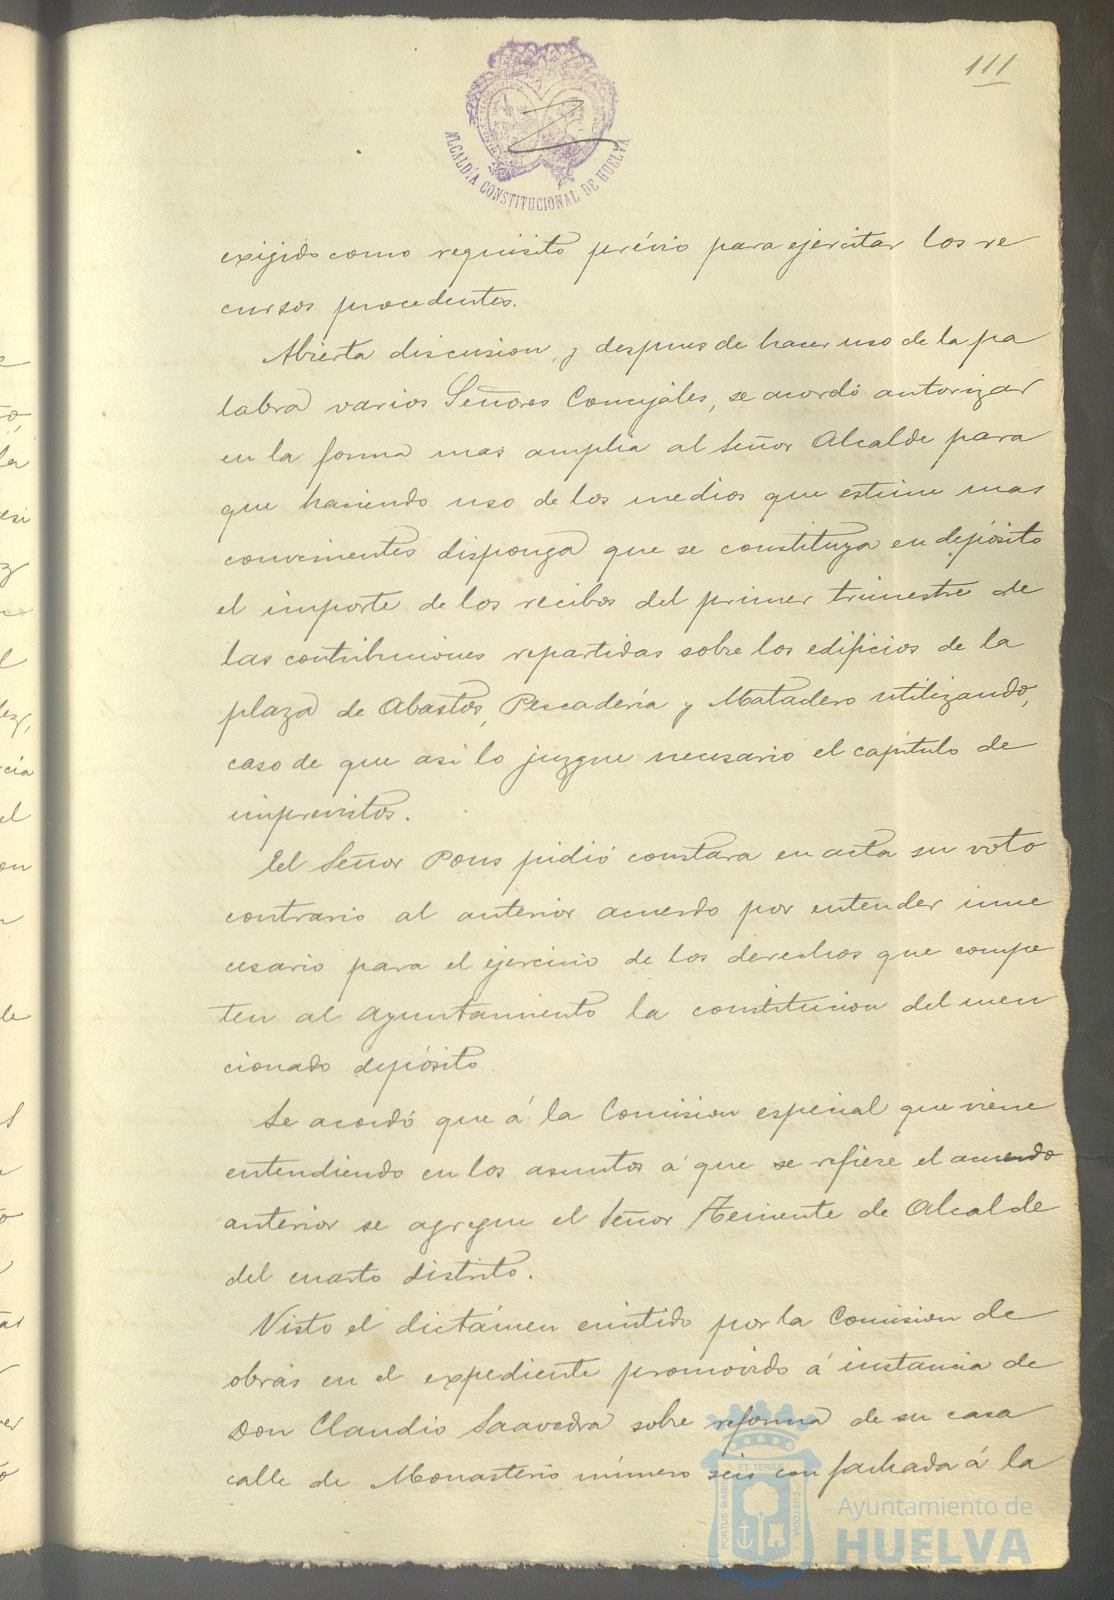 111
ALCALDÍA CONSTITUCIONAL DE HUELVA
exijido como requisito prévio para ejercitar los re
cursos procedentes.
Abierta discusion, y despues de hacer uso de la pa
labra varios Señores Concejales, se acordó autorizar
en la forma mas amplia al Señor Alcalde para
que haciendo uso de los medios que estime mas
convenientes disponga que se constituya en depósito
el importe de los recibos del primer trimestre de
las contribuciones repartidas sobre los edificios de la
plaza de Abastos, Pescadería y Matadero utilizando,
caso de que asi lo juzgue necesario el capítulo de
imprevistos.
El Señor Pons pidió constara en acta su voto
contrario al anterior acuerdo por entender inne
cesario para el ejercicio de los derechos que compe
ten al Ayuntamiento la constitucion del men
cionado depósito.
Se acordó que á la Comision especial que viene
entendiendo en los asuntos á que se refiere el acuerdo
anterior se agregue el Señor Teniente de Alcalde
del cuarto distrito.
Visto el dictámen emitido por la Comision de
obras en el expediente promovido á instancia de
Don Claudio Saavedra sobre reforma de su casa
calle de Monasterio número seis con fachada á la
PORTUS MARIS ET TERRA CUSTODIA
Ayuntamiento de
HUELVA